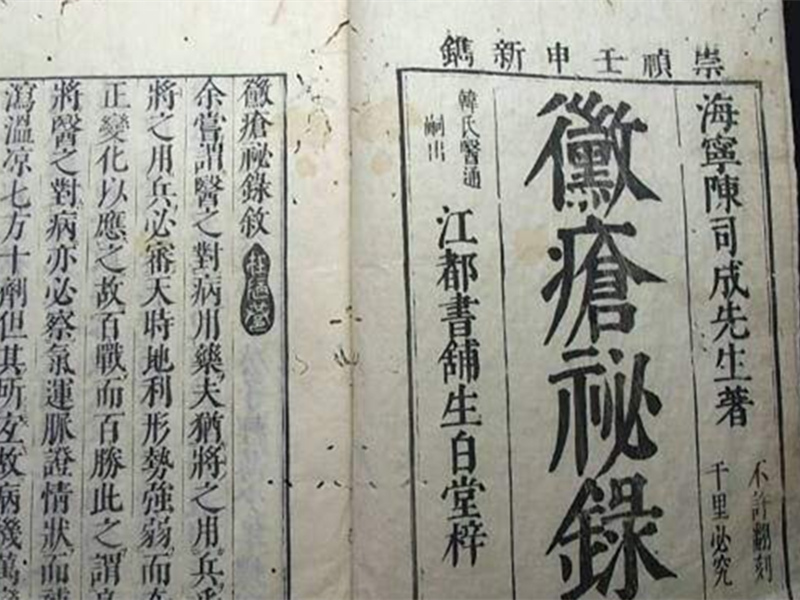 崇禎壬申新鐫
海寧陳司成先生著
不許翻刻
千里必究
黴瘡祕錄
韓氏醫通
嗣出
江都書舖生白堂梓
黴瘡祕錄敘
余嘗謂醫之對病用藥夫猶將之用兵乎
將之用兵必審天時地利形勢強弱而
正變化以應之故百戰而百勝此之謂良
將醫之對病亦必察氣運脈證情狀而補
瀉溫凉七方十劑但其所故病機萬變